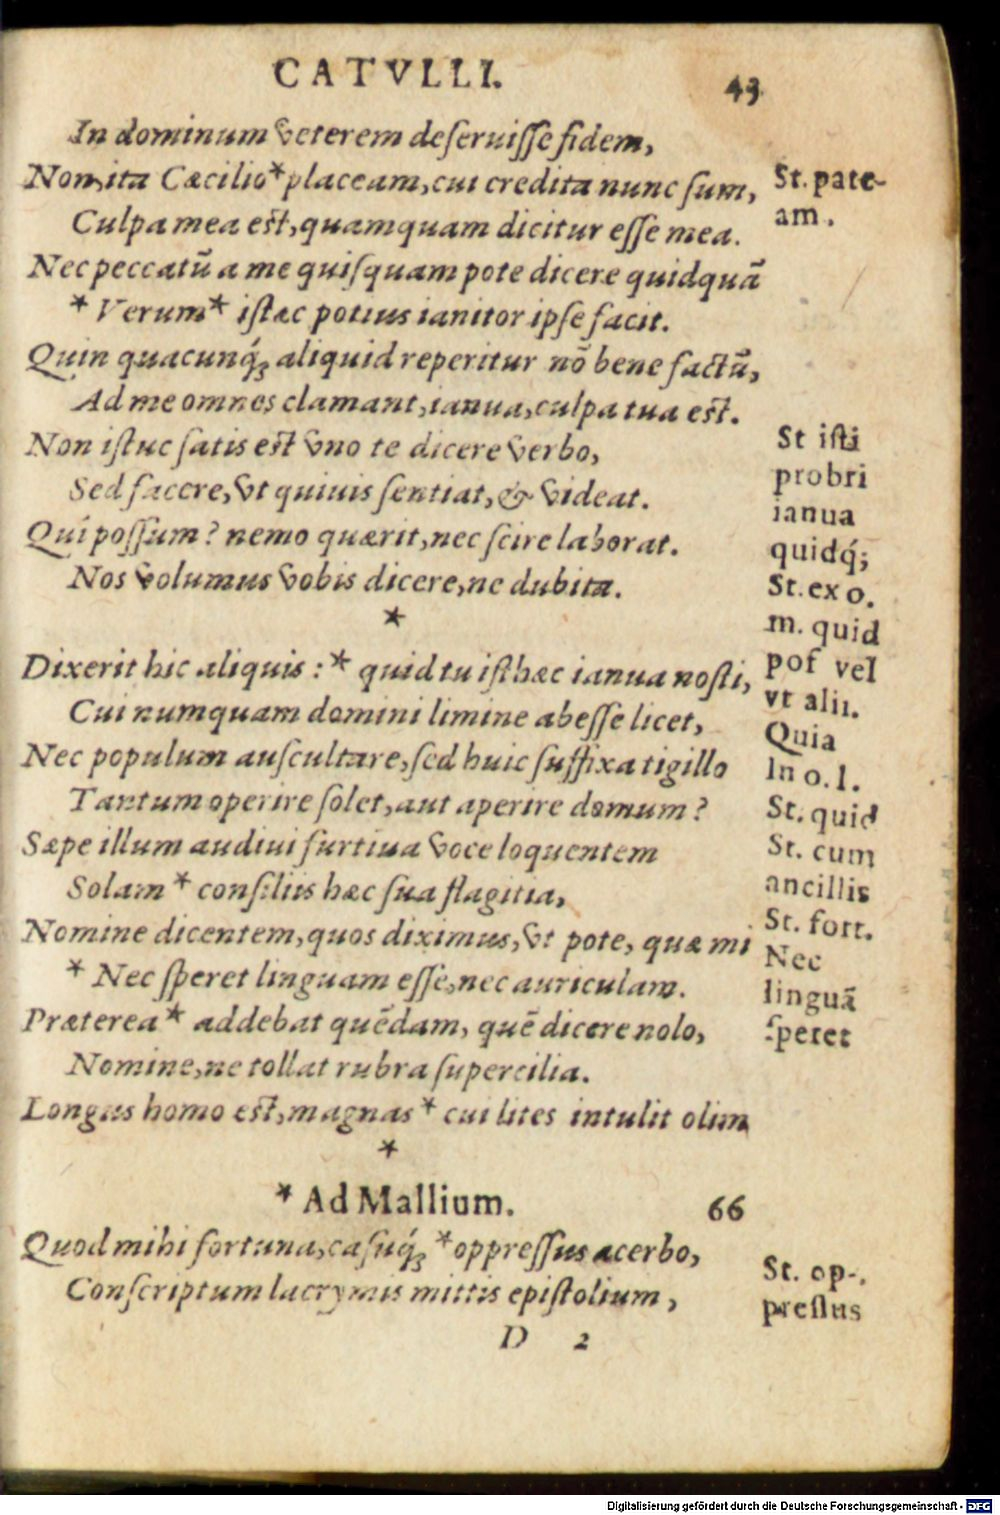 CATVLLI.
43
In dominum veterem deſeruiſſe fidem,
Non, ita Cæcilio * placeam, cui credita nunc ſum,
Culpa mea eſt, quamquam dicitur eſſe mea.
Nec peccatũ a me quiſquam pote dicere quidquã
* Verum * iſtæc potius ianitor ipſe facit.
Quin quacunq́ꝫ aliquid reperitur nõ bene factũ,
Ad me omnes clamant, ianua, culpa tua eſt.
Non iſtuc ſatis eſt vno te dicere verbo,
Sed facere, vt quiuis ſentiat, & videat.
Quí poſſum? nemo quærit, nec ſcire laborat.
Nos volumus vobis dicere, ne dubita.
*
Dixerit hic aliquis: * quid tu iſthæc ianua noſti,
Cui numquam domini limine abeſſe licet,
Nec populum auſcultare, ſed huic ſuffixa tigillo
Tantum operire ſolet, aut aperire domum?
Sæpe illum audiui furtiua voce loquentem
Solam * conſiliis hæc ſua flagitia,
Nomine dicentem, quos diximus, vt pote, quæ mi
* Nec ſperet linguam eſſe, nec auriculam.
Præterea * addebat quẽdam, quẽ dicere nolo,
Nomine, ne tollat rubra ſupercilia.
Longus homo eſt, magnas * cui lites intulit olim
*
* Ad Mallium. 66
Quod mihi fortuna, caſuq́ꝫ * oppreſſus acerbo,
Conſcriptum lacrymis mittis epiſtolium,
D 2
St. pate-
am.
St iſti
probri
ianua
quidq́;
St. ex o.
m. quid
poſ vel
vt alii.
Quia
In o. l.
St. quid
St. cum
ancillis
St. fort.
Nec
linguã
ſperet
St. op-.
preſſus
Digitalisierung gefördert durch die Deutsche Forschungsgemeinschaft - DFG